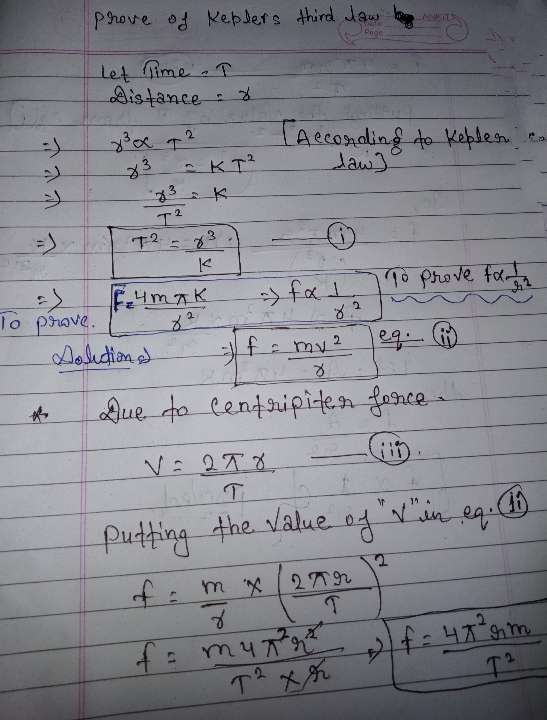 Prove of Keplers third law
Page
Let Time = T
Distance = r
=> r³ ∝ T² [According to Kepler law]
=> r³ = KT²
=> r³/T² = K
=> T² = r³/K —— (i)
=> F = 4mπK/r² => f ∝ 1/r² To prove f ∝ 1/r²
To prove.
Solution => f = mv²/r eq. (ii)
* Due to Centripiter force.
V = 2πr/T —— (iii).
Putting the value of "V" in eq. (ii)
f = m/r × (2πr/T)²
f = m4π²r²/T² × r => f = 4π²rm/T²